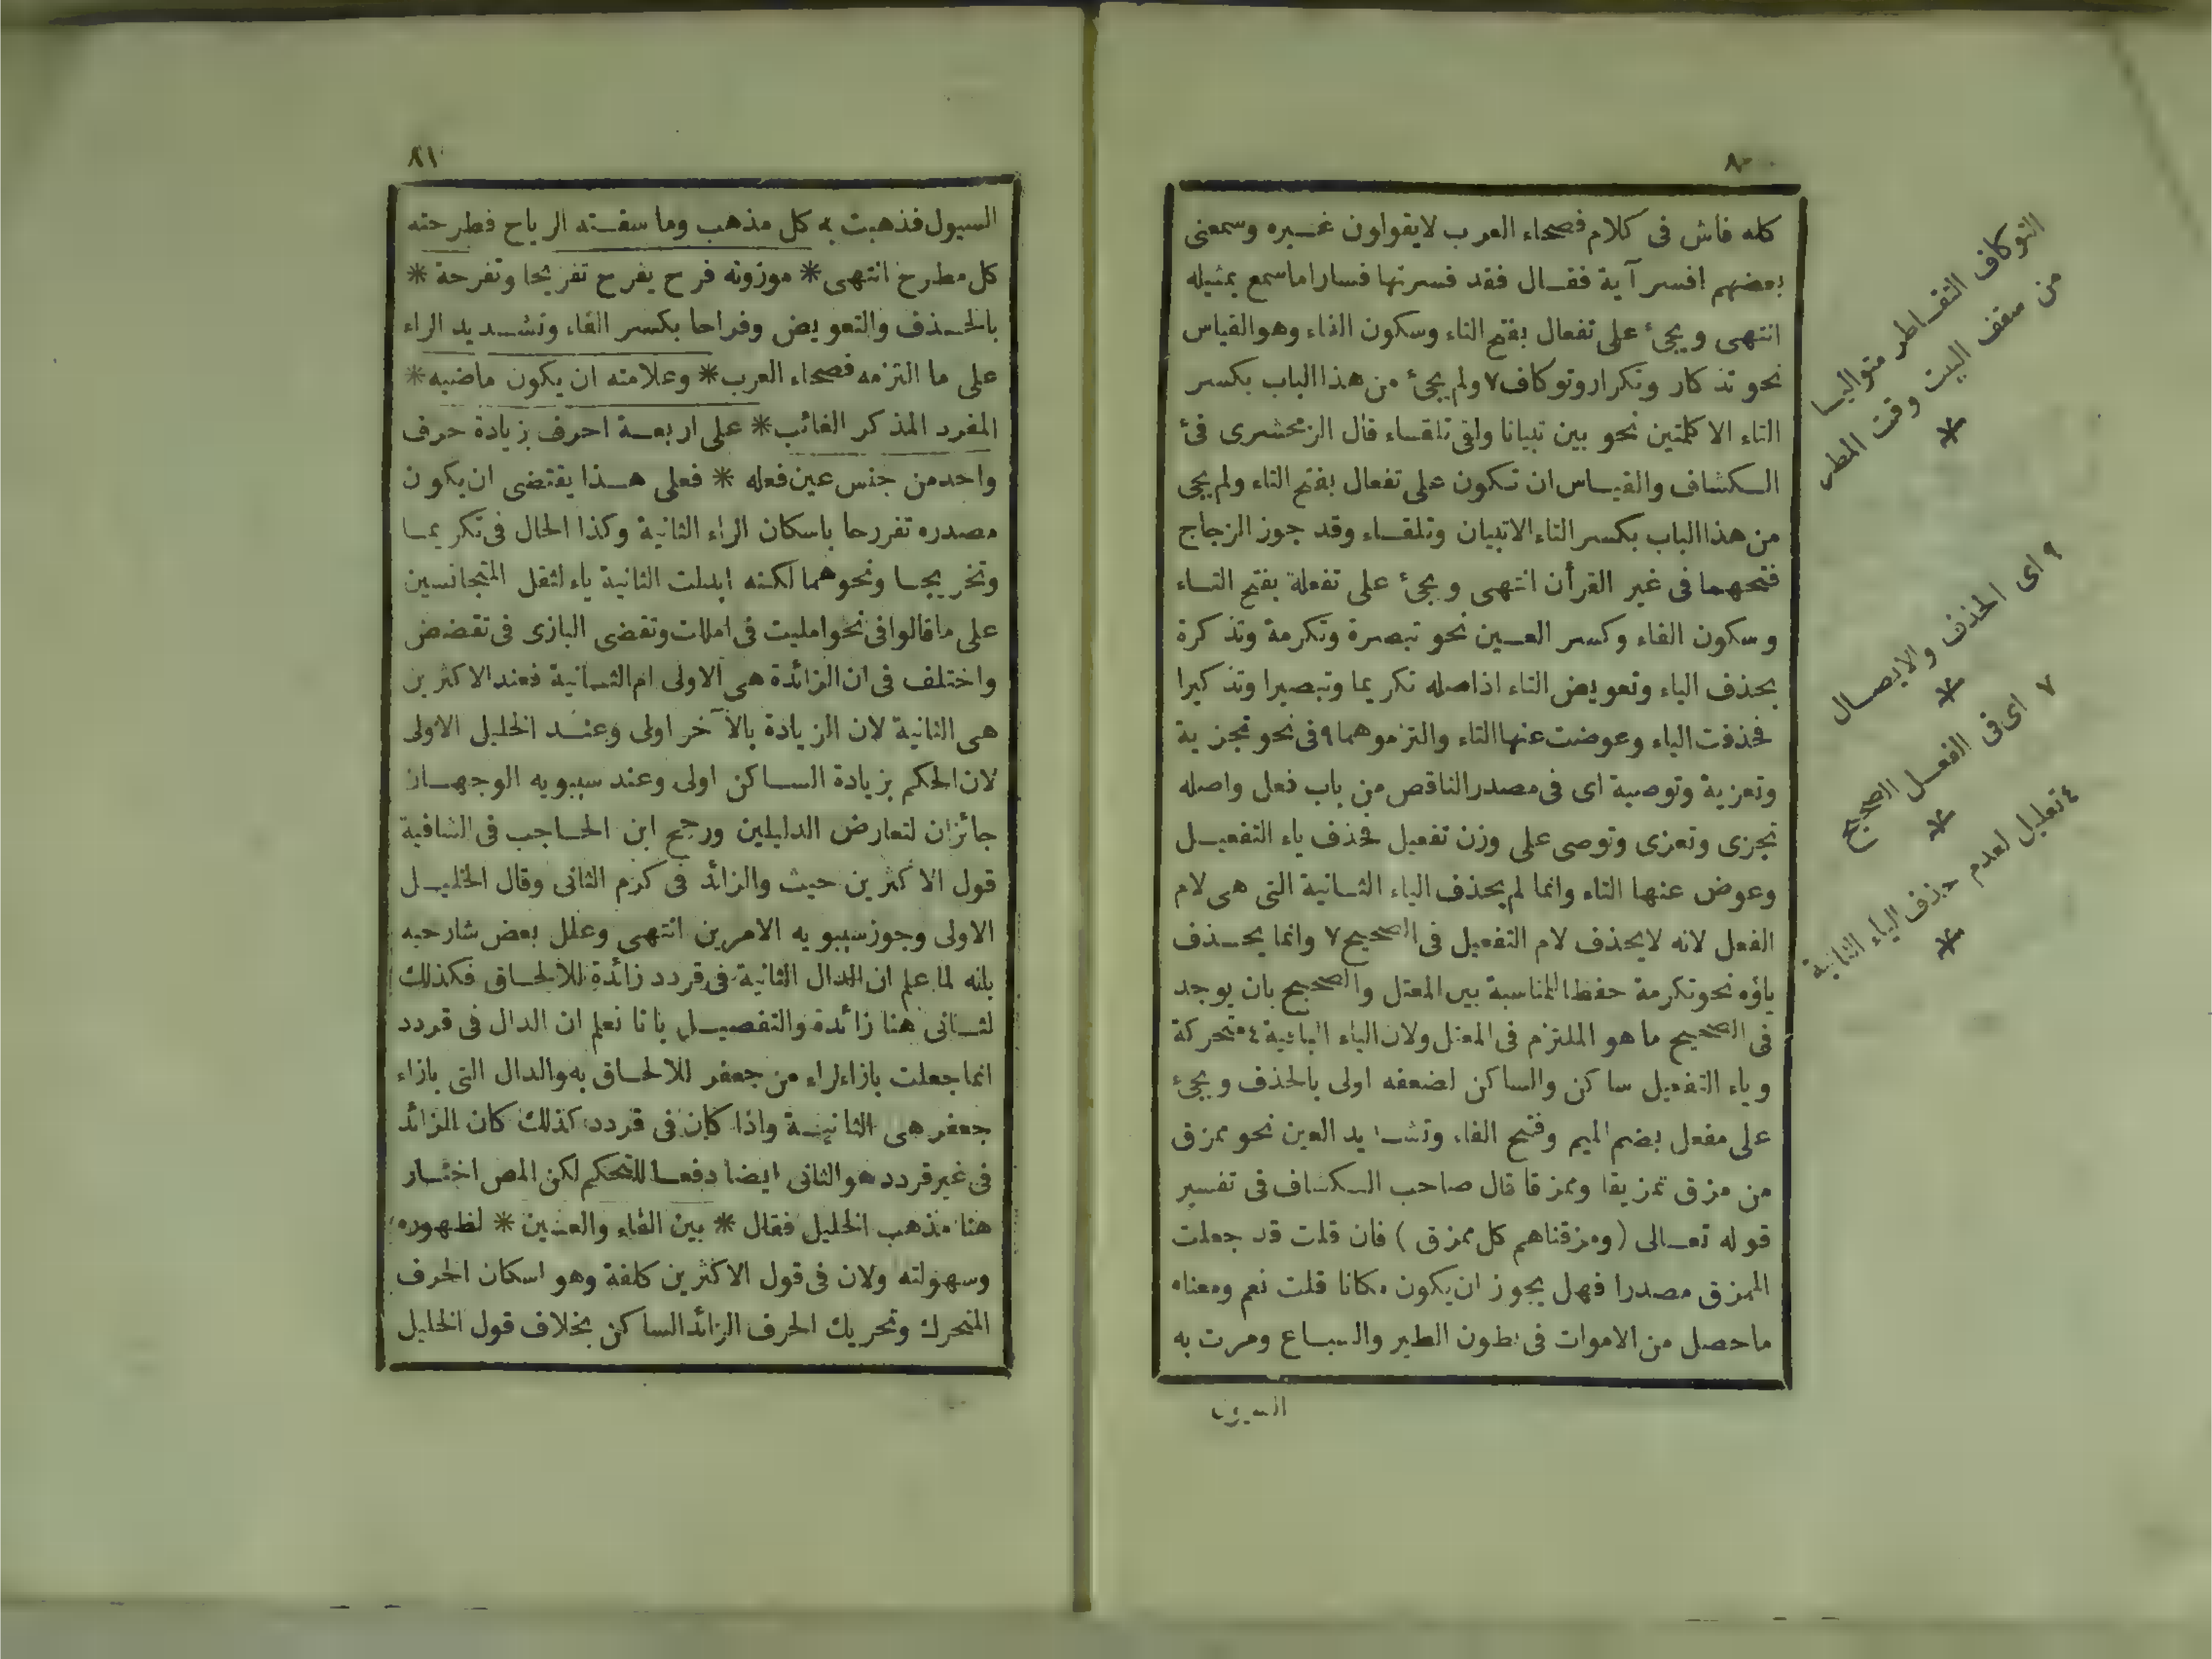 ٨٠
كله فاش فى كلام فصحاء العرب لايقولون غيره وسمعنى
بعضهم افسر آية فقال فقد فسرتها فسارا ماسمع بمثيله
انتهى ويجىٔ على تفعال بفتح التاء وسكون الفاء وهو القياس
نحو تذكار وتكرار وتوكاف٧ ولم يجىٔ من هذا الباب بكسر
التاء الا كلمتين نحو بين تبيانا ولقى تلقاء قال الزمخشرى فىٔ
الكشاف والقياس ان تكون على تفعال بفتح التاء ولم يجى
من هذا الباب بكسر التاء الاتبيان وتلقاء وقد جوز الزجاج
فتحهما فى غير القرأن انتهى ويجىٔ على تفعلة بفتح التاء
وسكون الفاء وكسر العين نحو تبصرة وتكرمة وتذكرة
بحذف الياء وتعويض التاء اذاصله تكريما وتبصيرا وتذكيرا
فحذفت الياء وعوضت عنها التاء والتزموهما٩ فى نحو تجزية
وتعزية وتوصية اى فى مصدر الناقص من باب فعل واصله
تجزى وتعزى وتوصى على وزن تفعيل فحذف ياء التفعيل
وعوض عنها التاء وانما لم يحذف الياء الثانية التى هى لام
الفعل لانه لايحذف لام التفعيل فى الصحيح٧ وانما يحذف
ياؤه نحوتكرمة حفظا للمناسبة بين المعتل والصحيح بان يوجد
فى الصحيح ما هو الملتزم فى المعتل ولان الياء الثانية٤ متحركة
وياء التفعيل ساكن والساكن لضعفه اولى بالحذف ويجىٔ
على مفعل بضم الميم وفتح الفاء وتشديد العين نحو ممزق
من مزق تمزيقا وممزقا قال صاحب الكشاف فى تفسير
قوله تعالى (ومزقناهم كل ممزق) فان قلت قد جعلت
الممزق مصدرا فهل يجوز ان يكون مكانا قلت نعم ومعناه
ماحصل من الاموات فى بطون الطير والسباع ومرت به
السيول
التوكاف التقاطر متواليا
من سقف البيت وقت المطر
*
٩ اى الحذف والايصال
*
٧ اى فى الفعل الصحيح
*
٤ تعليل لعدم حذف الياء الثانية
*
٨١
السيول فذهبت به كل مذهب وما سفته الرياح فطرحته
كل مطرح انتهى * موزونه فرح يفرح تفريحا وتفرحة *
بالحذف والتعويض وفراحا بكسر الفاء وتشديد الراء
على ما التزمه فصحاء العرب * وعلامته ان يكون ماضيه *
المفرد المذكر الغائب * على اربعة احرف بزيادة حرف
واحد من جنس عين فعله * فعلى هذا يقتضى ان يكون
مصدره تفررحا باسكان الراء الثانية وكذا الحال فى تكريما
وتخريجا ونحوهما لكنه ابدلت الثانية ياء لثقل المتجانسين
على ماقالوا فى نحو امليت فى املات وتقضى البازى فى تقضض
واختلف فى ان الزائدة هى الاولى ام الثانية فعند الاكثرين
هى الثانية لان الزيادة بالآخر اولى وعند الخليل الاولى
لان الحكم بزيادة الساكن اولى وعند سيبويه الوجهان
جائزان لتعارض الدليلين ورجح ابن الحاجب فى الشافية
قول الاكثرين حيث والزائد فى كرم الثانى وقال الخليل
الاولى وجوز سيبويه الامرين انتهى وعلل بعض شارحيه
بانه لما علم ان الدال الثانية فى قردد زائدة للالحاق فكذلك
لثانى هنا زائدة والتفصيل بانا نعلم ان الدال فى قردد
انما جعلت بازاءلراء من جعفر للالحاق به والدال التى بازاء
جعفر هى الثانية واذا كان فى قردد كذلك كان الزائد
فى غير قردد هو الثانى ايضا دفعا للتحكم لكن المص اختار
هنا مذهب الخليل فقال * بين الفاء والعين * لظهوره
وسهولته ولان فى قول الاكثرين كلفة وهو اسكان الحرف
المتحرك وتحريك الحرف الزائد الساكن بخلاف قول الخليل